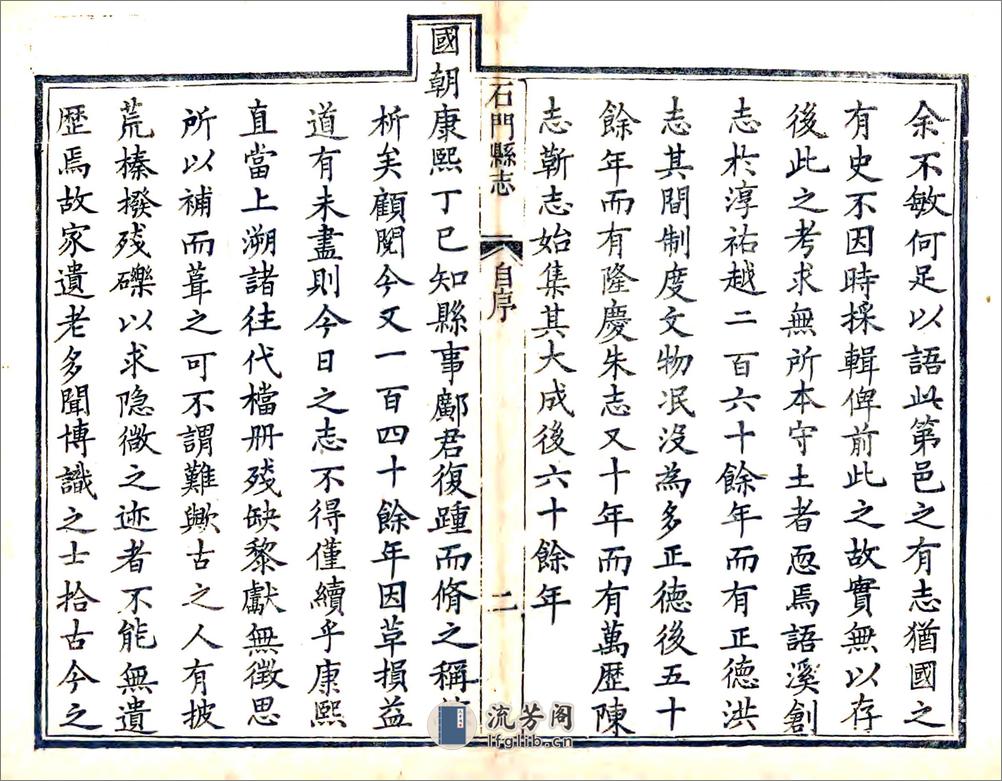 余不敏何足以語此第邑之有志猶國之
有史不因時採輯俾前此之故實無以存
後此之考求無所本守土者恧焉語溪創
志於淳祐越二百六十餘年而有正德洪
志其間制度文物泯沒為多正德後五十
餘年而有隆慶朱志又十年而有萬歴陳
志靳志始集其大成後六十餘年
石門縣志
自序
二
國朝康熙丁巳知縣事鄺君復踵而脩之稱
析矣顧閱今又一百四十餘年因革損益
道有未盡則今日之志不得僅續乎康熙
直當上溯諸往代檔册残缺黎獻無徵思
所以補而葺之可不謂難歟古之人有披
荒榛撥残礫以求隐微之迹者不能無遺
歴焉故家遺老多聞博識之士拾古今之
流芳阁
lfglib.cn